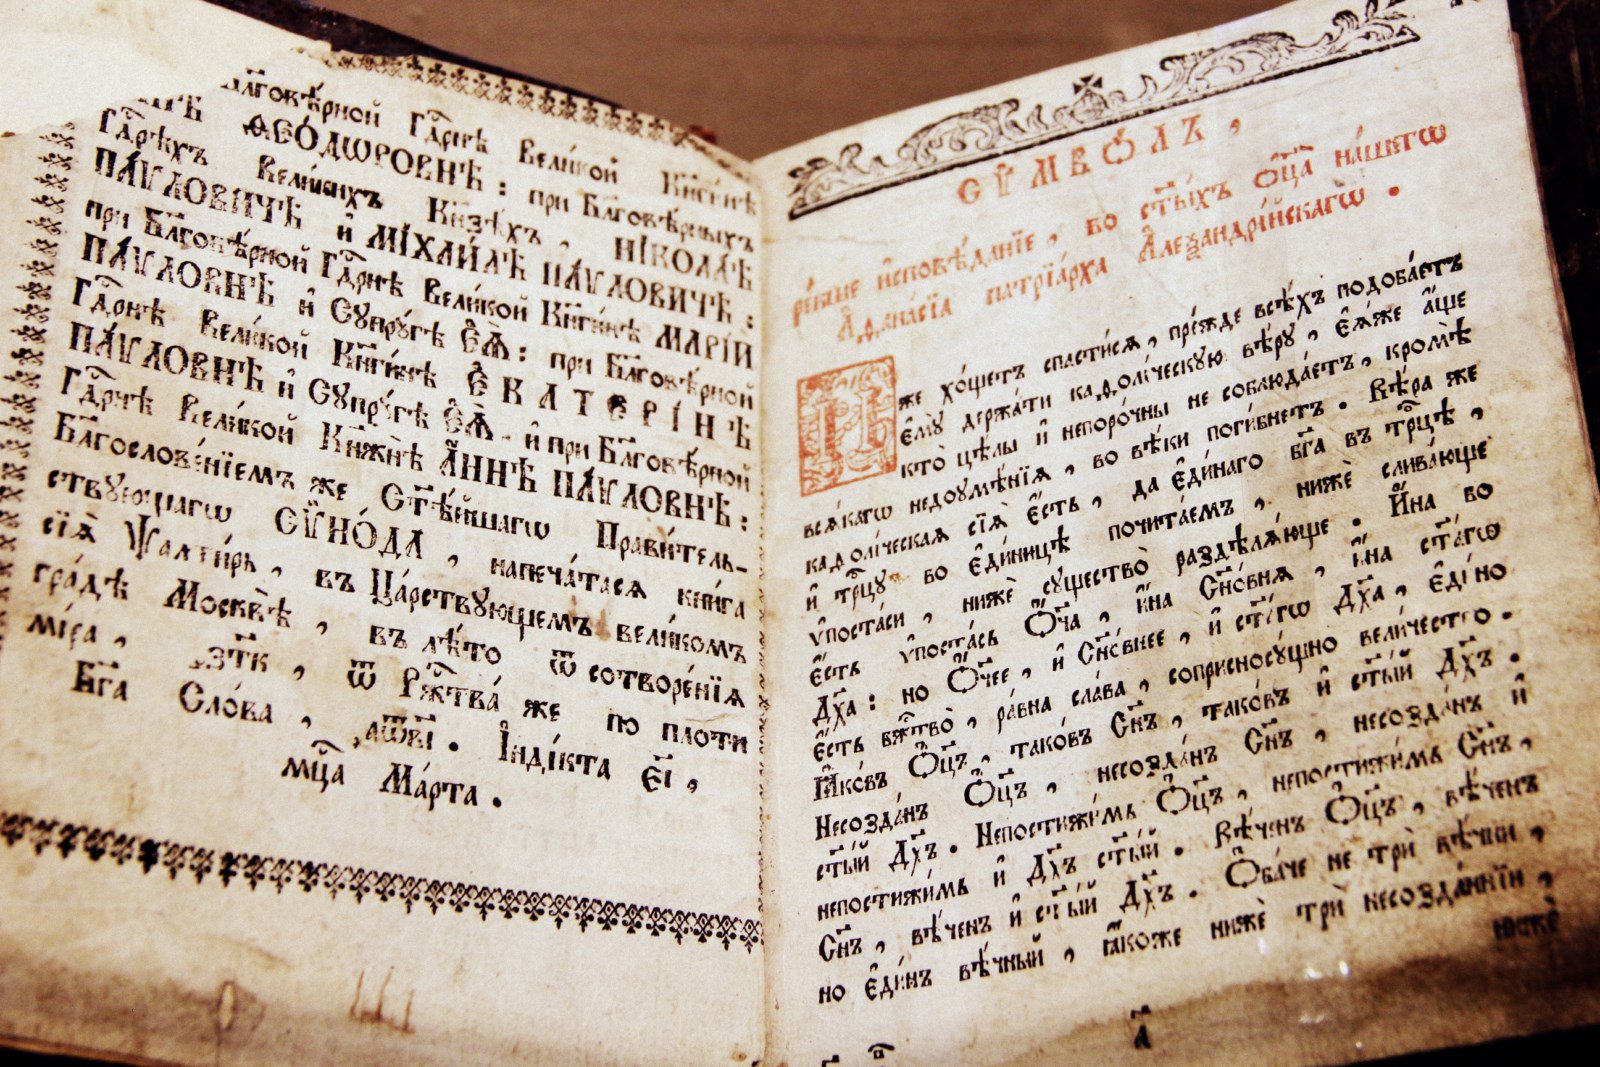 Бл҃говѣ́рной Гдⷭ҇рнѣ Вели́кой Кнѧги́нѣ
Ѳео́дѡровнѣ : при Бл҃говѣ́рныхъ
Гдⷭ҇рѣхъ Вели́кихъ Кнѧзѣ́хъ , Нікола́ѣ
Па́ѵловичѣ и҆ Міхаи́лѣ Па́ѵловичѣ :
при Бл҃говѣ́рной Гдⷭ҇рнѣ Вели́кой Кнѧги́нѣ Марі́и
Па́ѵловнѣ и҆ Сꙋпрꙋ́гѣ Е҆ѧ̀ : при Бл҃говѣ́рной
Гдⷭ҇рнѣ Вели́кой Кнѧги́нѣ Е҆катері́нѣ
Па́ѵловнѣ и҆ Сꙋпрꙋ́гѣ Е҆ѧ̀ . и҆ при Бл҃говѣ́рной
Гдⷭ҇рнѣ Вели́кой Кнѧжнѣ̀ А҆́ннѣ Па́ѵловнѣ :
Бл҃гослове́нїемъ же Ст҃ѣ́йшагѡ Прави́тель-
ствꙋющагѡ Сѷно́да , напеча́тасѧ кни́га
сїѧ̀ Ѱалти́рь , въ Ца́рствꙋющемъ вели́комъ
гра́дѣ Москвѣ̀ , въ лѣ́то ѿ сотворе́нїѧ
мі́ра , ҂зт҃к , ѿ Ржⷭ҇тва́ же по плоти
Бг҃а Сло́ва , ҂аѿв҃і . І҆нді́кта е҃і ,
мцⷭ҇а Ма́рта .
Сѷмво́лъ ,
ре́кше и҆сповѣ́данїе , во ст҃ы́хъ ѻ҆ц҃а̀ на́шегѡ
А҆ѳана́сїа патрїа́рха А҆леѯандрі́йскагѡ .
И҆́же хо́щетъ спасти́сѧ , пре́жде всѣ́хъ подоба́етъ
є҆мꙋ̀ держа́ти каѳолі́ческꙋю вѣ́рꙋ , є҆ѧ́же а҆́ще
кто̀ цѣ́лы и҆ непоро́чны не соблюда́етъ , кромѣ̀
всѧ́кагѡ недоꙋмѣ́нїѧ , во вѣ́ки поги́бнетъ . Вѣ́ра же
каѳолі́ческаѧ сїѧ̀ є҆́сть , да є҆ди́наго бг҃а въ трⷪ҇цѣ ,
и҆ трⷪ҇цꙋ во є҆ди́ницѣ почита́емъ , нижѐ слива́юще
ѵ҆поста́си , нижѐ сꙋщество̀ раздѣлѧ́юще . И҆́на во
є҆́сть ѵ҆поста́сь Ѻ҆́ч҃а , и҆́на Сн҃о́внѧ , и҆́на ст҃а́гѡ
Дх҃а : но Ѻ҆́ч҃ее , и҆ Сн҃о́внее , и҆ ст҃а́гѡ Дх҃а , є҆ди́но
є҆́сть бжⷭ҇тво̀ , ра́вна сла́ва , соприсносꙋ́щно вели́чество .
Ꙗ҆ко́въ Ѻ҆ц҃ъ , тако́въ Сн҃ъ , тако́въ и҆ ст҃ы́й Дх҃ъ .
Несозда́нъ Ѻ҆ц҃ъ , несозда́нъ Сн҃ъ , несозда́нъ и҆
ст҃ы́й Дх҃ъ . Непостижи́мь Ѻ҆ц҃ъ , непостижи́мь Сн҃ъ ,
непостижи́мь и҆ Дх҃ъ ст҃ы́й . Вѣ́ченъ Ѻ҆ц҃ъ , вѣ́ченъ
Сн҃ъ , вѣ́ченъ и҆ ст҃ы́й Дх҃ъ . Ѻ҆ба́че не трѝ вѣ́чни ,
но є҆ди́нъ вѣ́чный , ꙗ҆́коже нижѐ трѝ несозда́ннїи ,
нижѐ
а҃